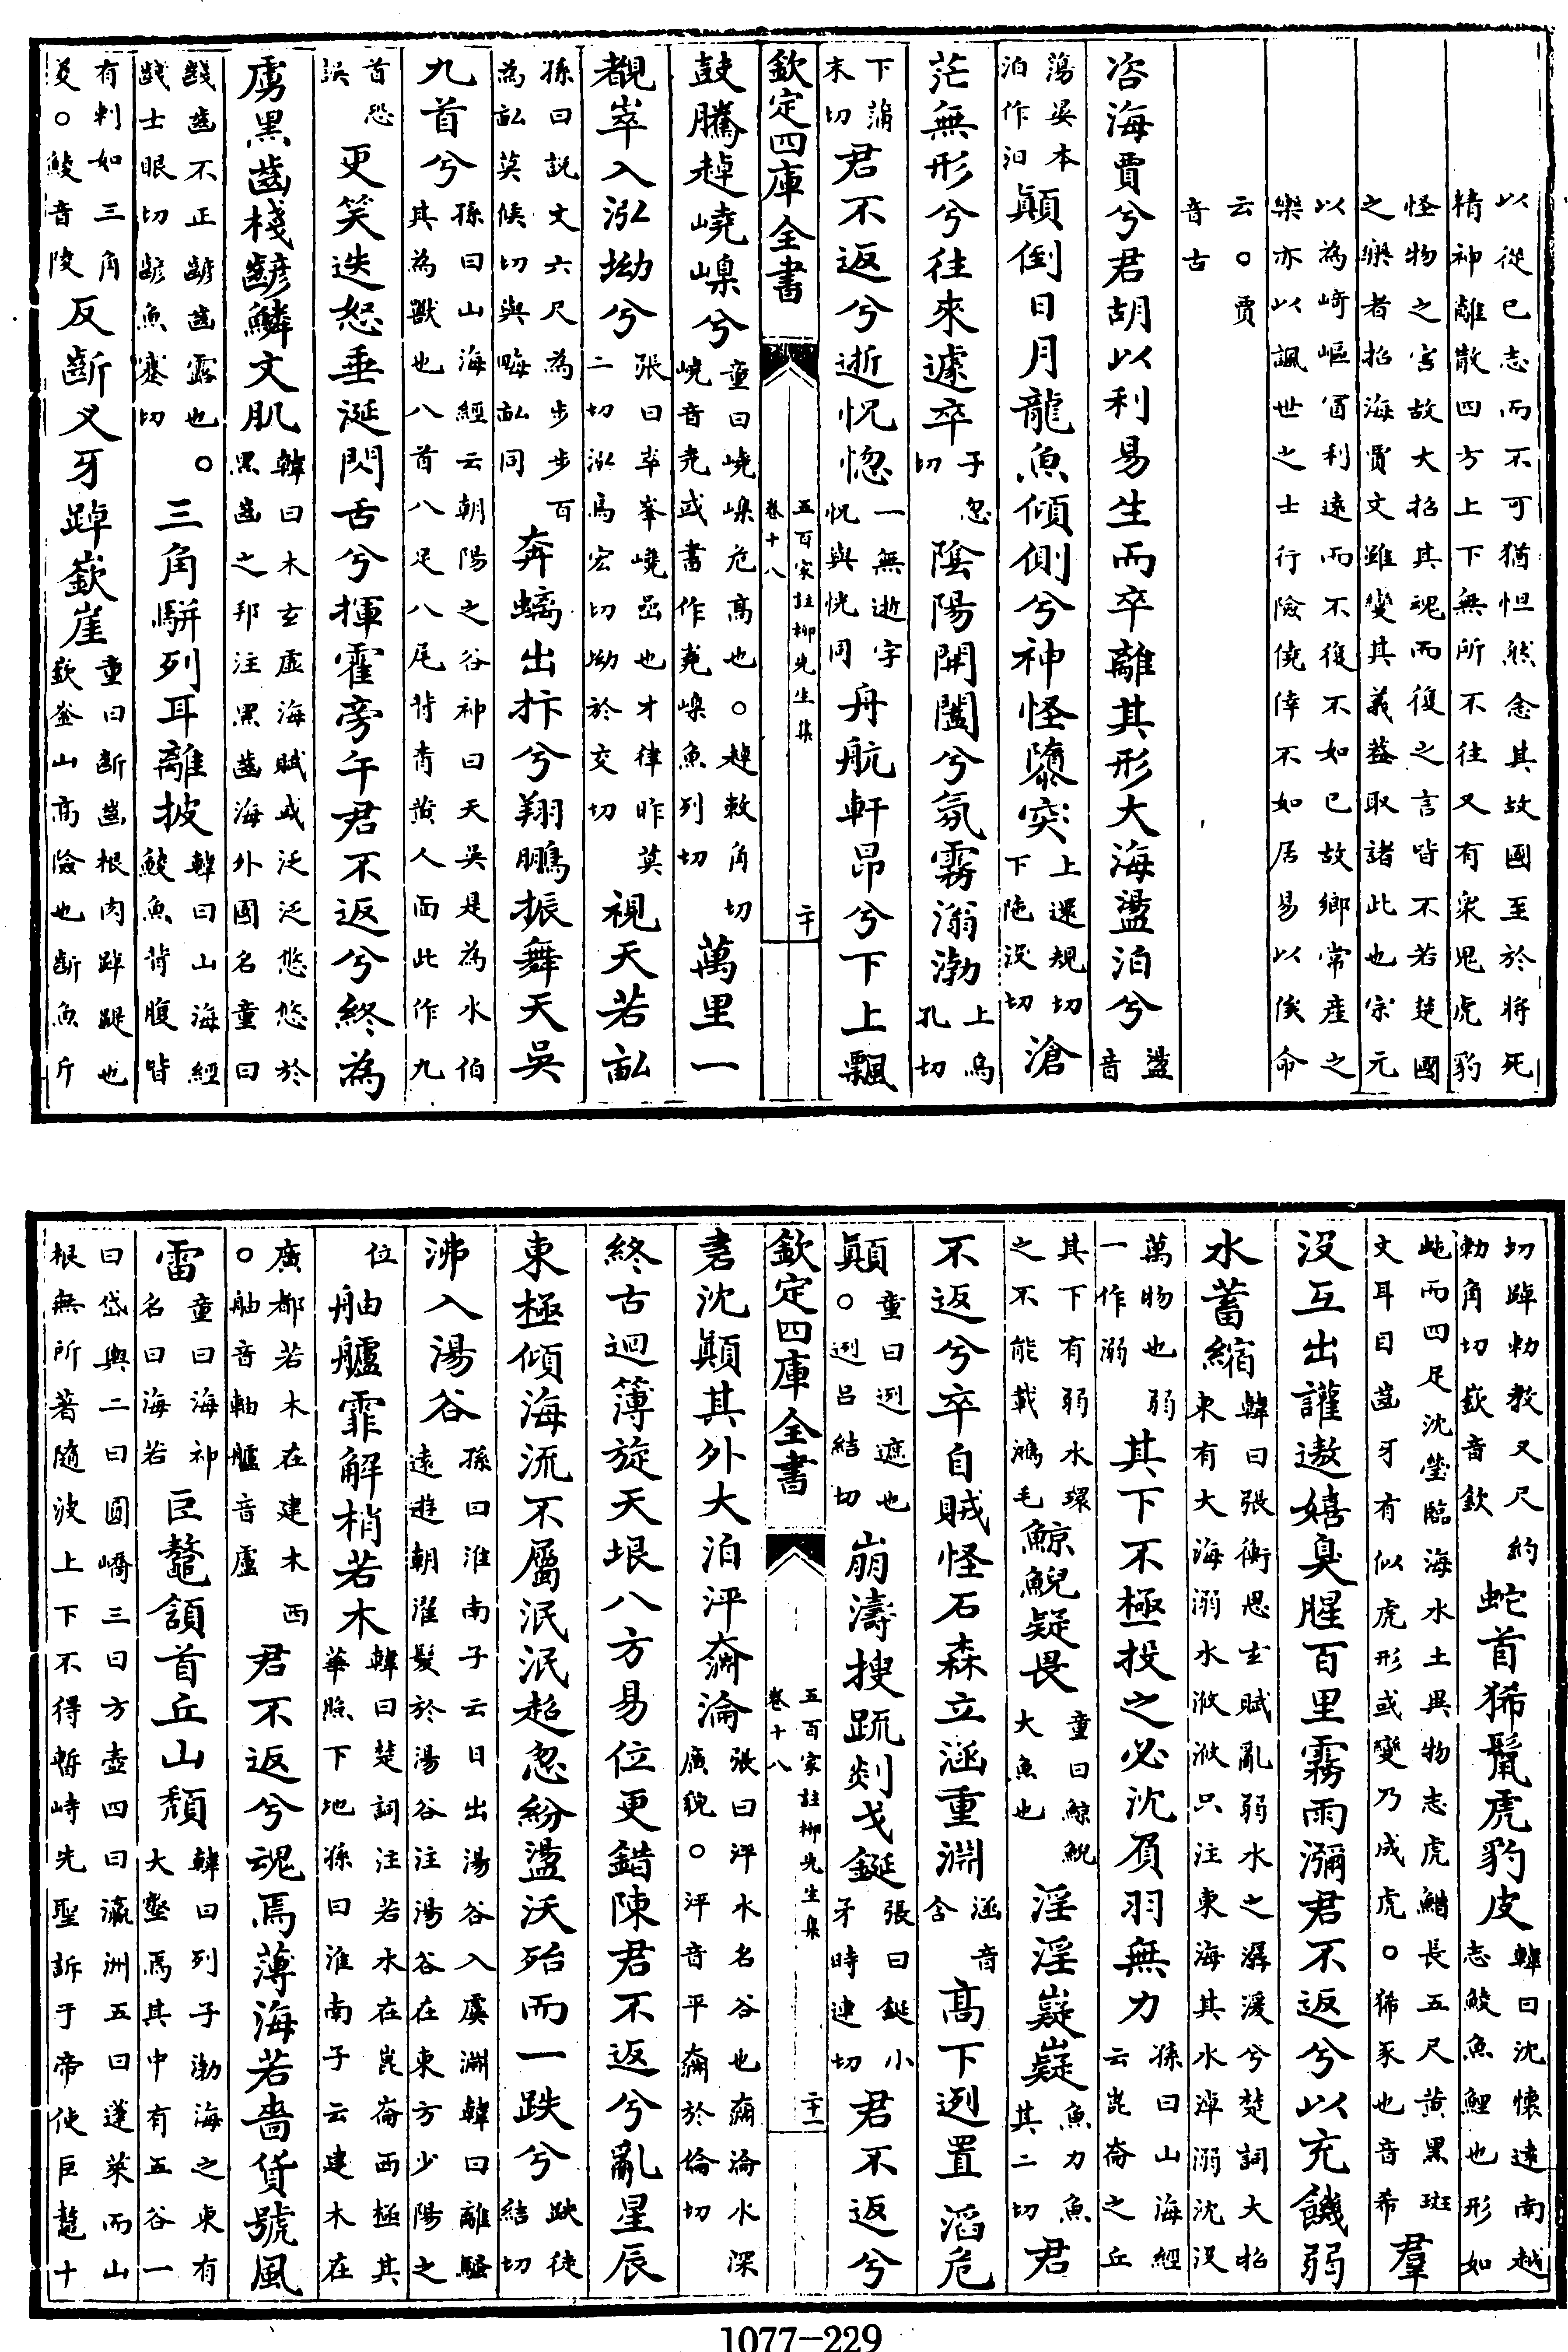 以從已志而不可猶怛然念其故國至於將死
精神離散四方上下無所不往又有衆鬼虎豹
怪物之害故大招其魂而復之言皆不若楚國
之樂者招海賈文雖變其義蓋取諸此也宗元
以為崎嶇冒利遠而不復不如已故鄉常産之
樂亦以諷世之士行險僥倖不如居易以俟命
云○賈
音古
咨海賈兮君胡以利易生而卒離其形大海盪泊兮盪音
蕩晏本泊作汩顛倒日月龍魚傾側兮神怪隳突上還規切下陁没切滄
茫無形兮往來遽卒子忽切陰陽開闔兮氛霧滃渤上烏孔切
下蒲末切君不返兮逝怳惚一無逝字怳與恍同舟航軒昂兮下上飄
欽定四庫全書 五百家註柳先生集 卷十八 二十
鼓騰趠嶢嵲兮童曰嶢嵲危髙也○趠敕角切嶢音尭或書作嶤嵲魚列切萬里一
覩崒入泓坳兮張曰崒峯嶢嵒也才律昨莫二切泓烏宏切坳於交切視天若畝
孫曰説文六尺為步步百為畝莫候切與畮畝同奔螭出抃兮翔鵬振舞天吳
九首兮孫曰山海經云朝陽之谷神曰天吳是為水伯其為獸也八首八足八尾背青黄人面此作九
首恐誤更笑迭怒垂涎閃舌兮揮霍旁午君不返兮終為
虜黑齒棧齴鱗文肌韓曰木玄虛海賦或泛泛悠悠於黑齒之邦注黑齒海外國名童曰
齾齒不正齴齒露也○齾士眼切齴魚蹇切三角駢列耳離披韓曰山海經鯪魚背腹皆
有刺如三角菱○鯪音陵反齗叉牙踔嶔崖童曰齗齒根肉踔踶也嶔崟山髙險也齗魚斤
切踔勑教又尺約勑角切嶔音欽蛇首豨鬛虎豹皮韓曰沈懷逺南越志鯪魚鯉也形如
虵而四足沈瑩臨海水土異物志虎鱛長五尺黄黑斑文耳目齒牙有似虎形或變乃成虎○豨豕也音希羣
没互出讙遨嬉臭腥百里霧雨瀰君不返兮以充饑弱
水蓄縮韓曰張衡思玄賦亂弱水之潺湲兮楚詞大招東有大海溺水浟浟只注東海其水淖溺沈没
萬物也弱一作溺其下不極投之必沈負羽無力孫曰山海經云崑崙之丘
其下有弱水環之不能載鴻毛鯨鯢疑畏童曰鯨鯢大魚也淫淫嶷嶷魚力魚其二切君
不返兮卒自賊怪石森立涵重淵涵音含髙下迾置滔危
顛童曰迾遮也○迾吕結切崩濤搜疏剡戈鋋張曰鋋小矛時連切君不返兮
欽定四庫全書 五百家註柳先生集 卷十八 二十一
砉沈顛其外大泊泙奫淪張曰泙水名谷也奫淪水深廣貌○泙音平奫於倫切
終古迴簿旋天垠八方易位更錯陳君不返兮亂星辰
東極傾海流不屬泯泯超忽紛盪沃殆而一跌兮跌徒結切
沸入湯谷孫曰淮南子云日出湯谷入虞淵韓曰離騷逺遊朝濯髮於湯谷注湯谷在東方少陽之
位舳艫霏解梢若木韓曰楚詞注若水在崑崙西極其華照下地孫曰淮南子云建木在
廣都若木在建木西○舳音軸艫音盧君不返兮魂焉薄海若嗇貨號風
雷童曰海神名曰海若巨鼇頷首丘山頹韓曰列子渤海之東有大壑焉其中有五谷一
曰岱輿二曰圓嶠三曰方壺四曰瀛洲五曰蓬萊而山根無所著隨波上下不得暫峙先聖訴于帝使巨鼇十
1077—229